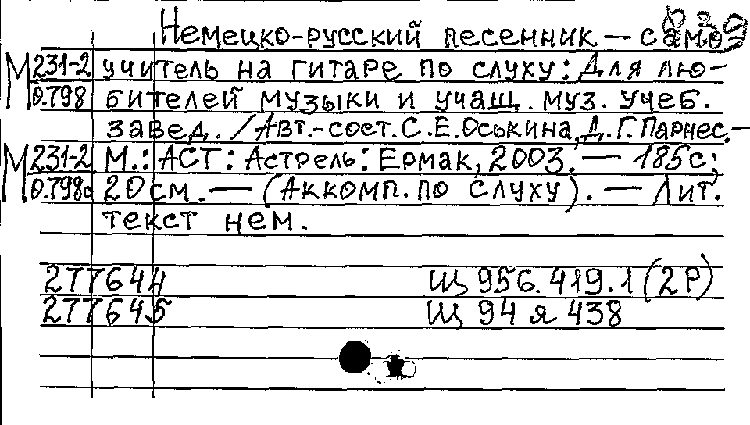 Немецко-русский песенник — само
М 231-2 учитель на гитаре по слуху: Для лю-
0.798 бителей музыки и учащ. муз. учеб.
завед. / Авт.-сост. С.Е.Оськина, Д.Г.Парнес. —
М 231-2 М.: АСТ: Астрель: Ермак, 2003. — 185с;
0.798а 20см. — (Аккомп. по слуху). — Лит.
текст нем.
277644 Щ 956.419.1(2Р)
277645 Щ 94 я 438